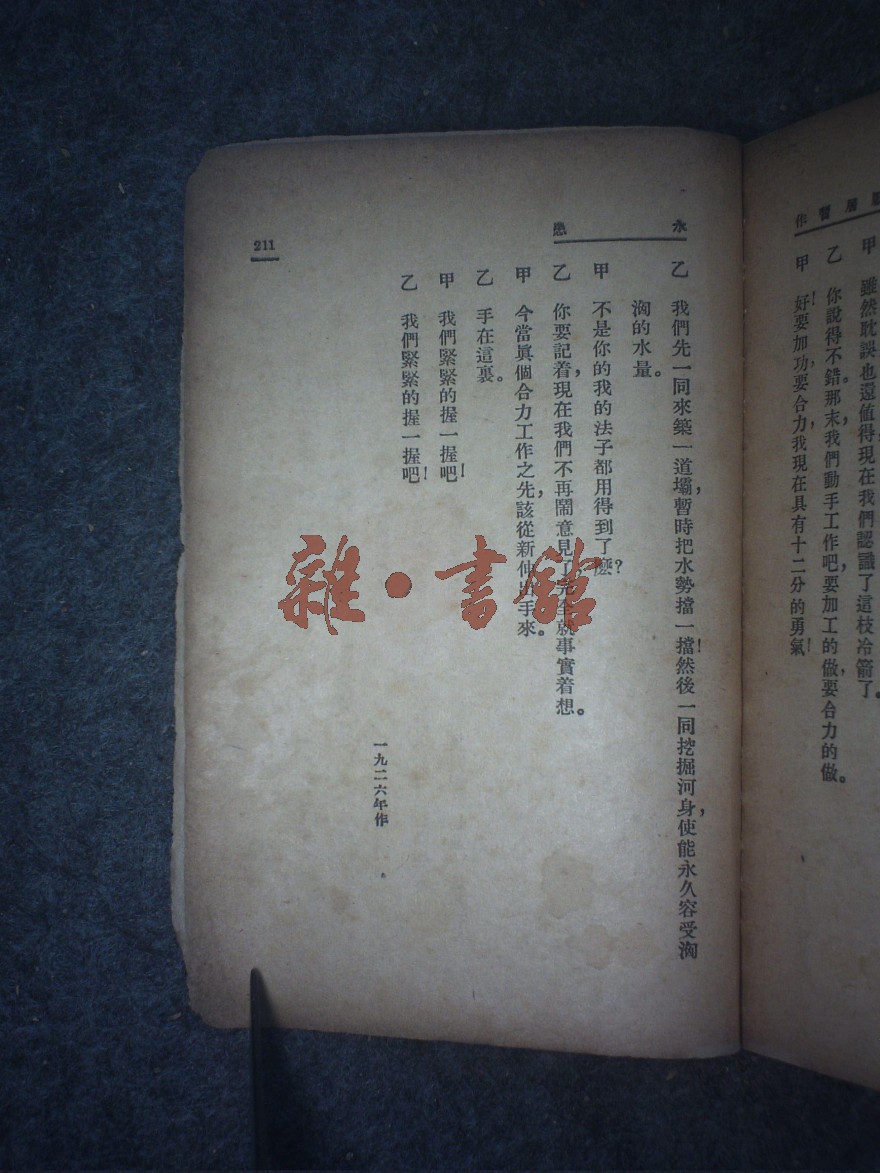 厭居習作
甲 雖然耽誤也還值得,現在我們認識了這枝冷箭了。
乙 你說得不錯。那末,我們動手工作吧,要加工的做,要合力的做。
甲 好!要加功,要合力,我現在具有十二分的勇氣!
水患
乙 我們先一同來築一道壩,暫時把水勢擋一擋!然後一同挖掘河身,使能永久容受洶
洶的水量。
甲 不是你的我的法子都用得到了麼?
乙 你要記着,現在我們不再鬧意見了完全就事實着想。
甲 今當眞個合力工作之先,該從新伸出手來。
乙 手在這裏。
甲 我們緊緊的握一握吧!
乙 我們緊緊的握一握吧!
一九二六年作。
211
雜·書館